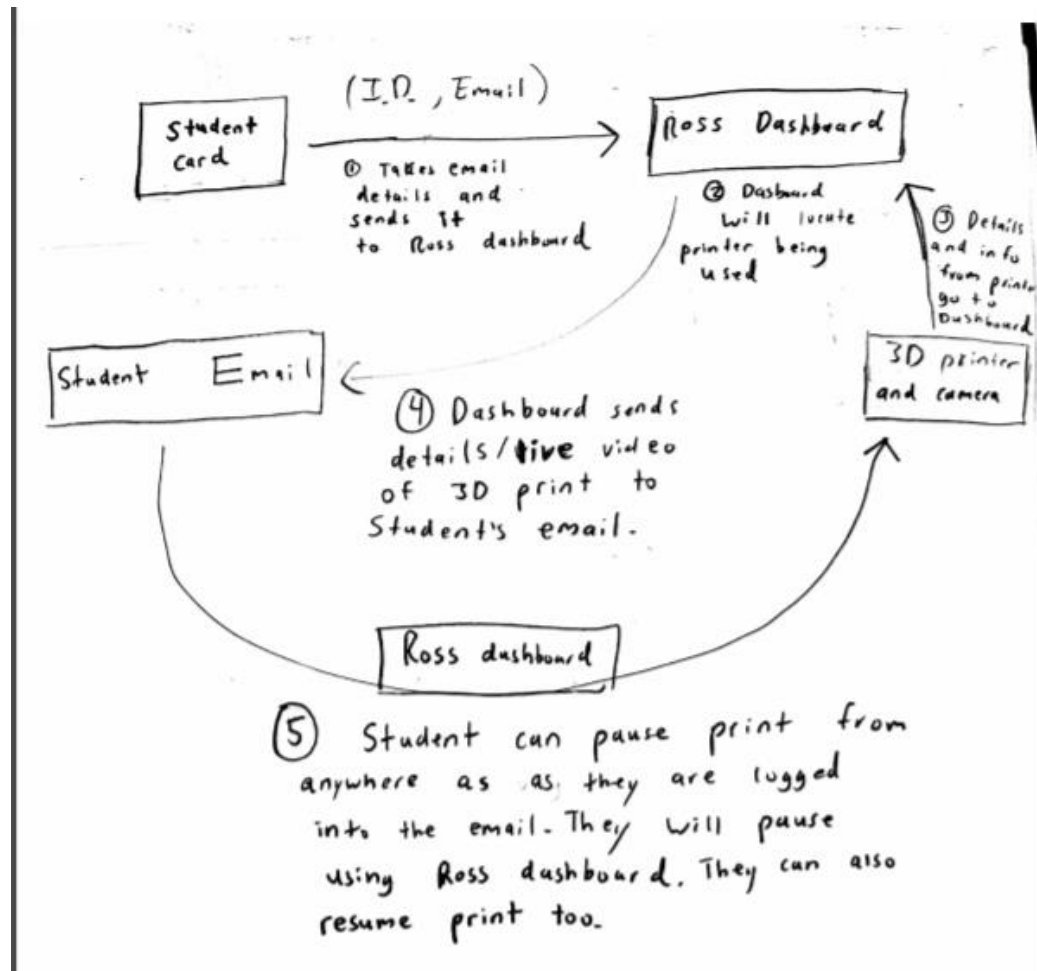 (I.D., Email)
Student
card
① Takes email
details and
sends It
to Ross dashboard
Ross Dashboard
② Dasboard
will locate
printer being
used
③ Details
and info
from printer
go to
Dashboard
3D printer
and camera
Student Email
④ Dashboard sends
details/live video
of 3D print to
Student's email.
Ross dashboard
⑤ Student can pause print from
anywhere as as they are logged
into the email. They will pause
using Ross dashboard. They can also
resume print too.